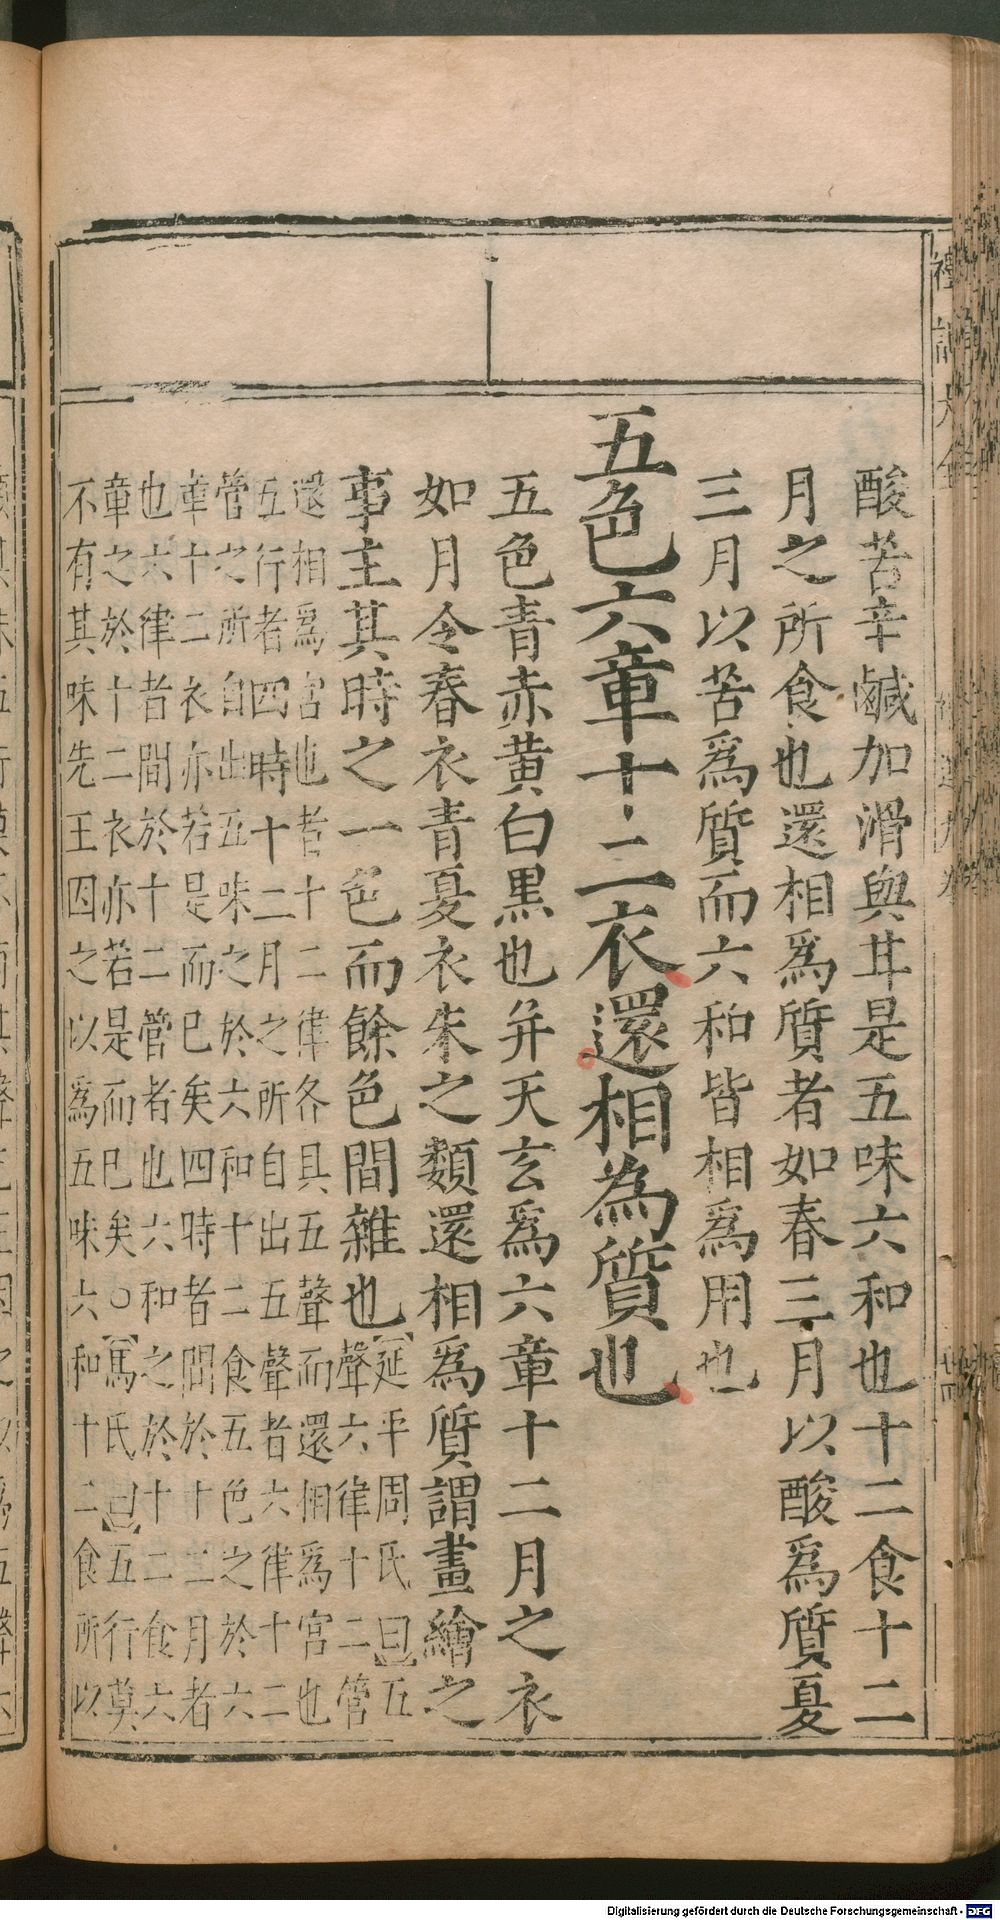 酸苦辛鹹加滑與甘是五味六和也十二食十二
月之所食也還相爲質者如春三月以酸爲質夏
三月以苦爲質而六和皆相爲用也
五色六章十二衣還相為質也
五色青赤黃白黒也并天玄爲六章十二月之衣
如月令春衣青夏衣朱之類還相爲質謂畫繪之
事主其時之一色而餘色間雜也
【延平周氏曰】五
聲六律十二管
還相爲宮也者十二律各具五聲而還相爲宮也
五行者四時十二月之所自出五聲者六律十二
管之所自出五味之於六和十二食五色之於六
章十二衣亦若是而已矣四時者間於十二月者
也六律者間於十二管者也六和之於十二食六
章之於十二衣亦若是而已矣○【馬氏曰】五行莫
不有其味先王因之以爲五味六和十二食所以
Digitalisierung gefördert durch die Deutsche Forschungsgemeinschaft - DFG